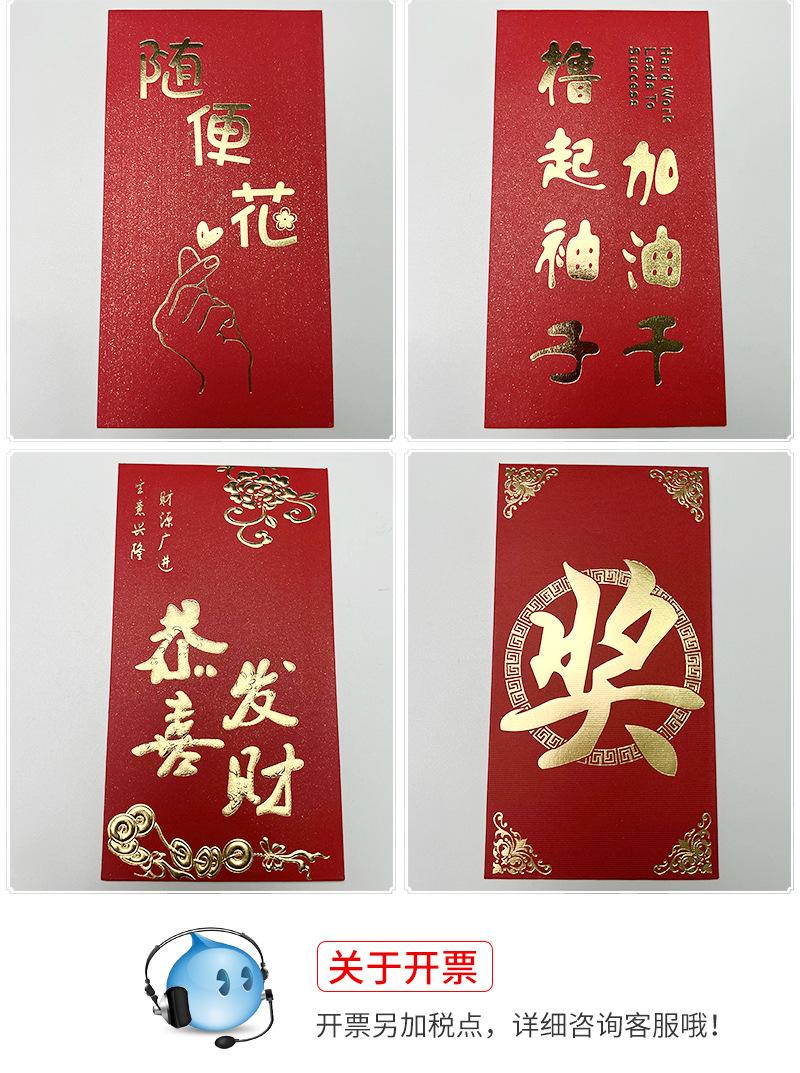 随便花
撸起袖子
加油干
Hard Work
Leads To
Success
财源广进
生意兴隆
恭喜
发财
奖
关于开票
开票另加税点，详细咨询客服哦！